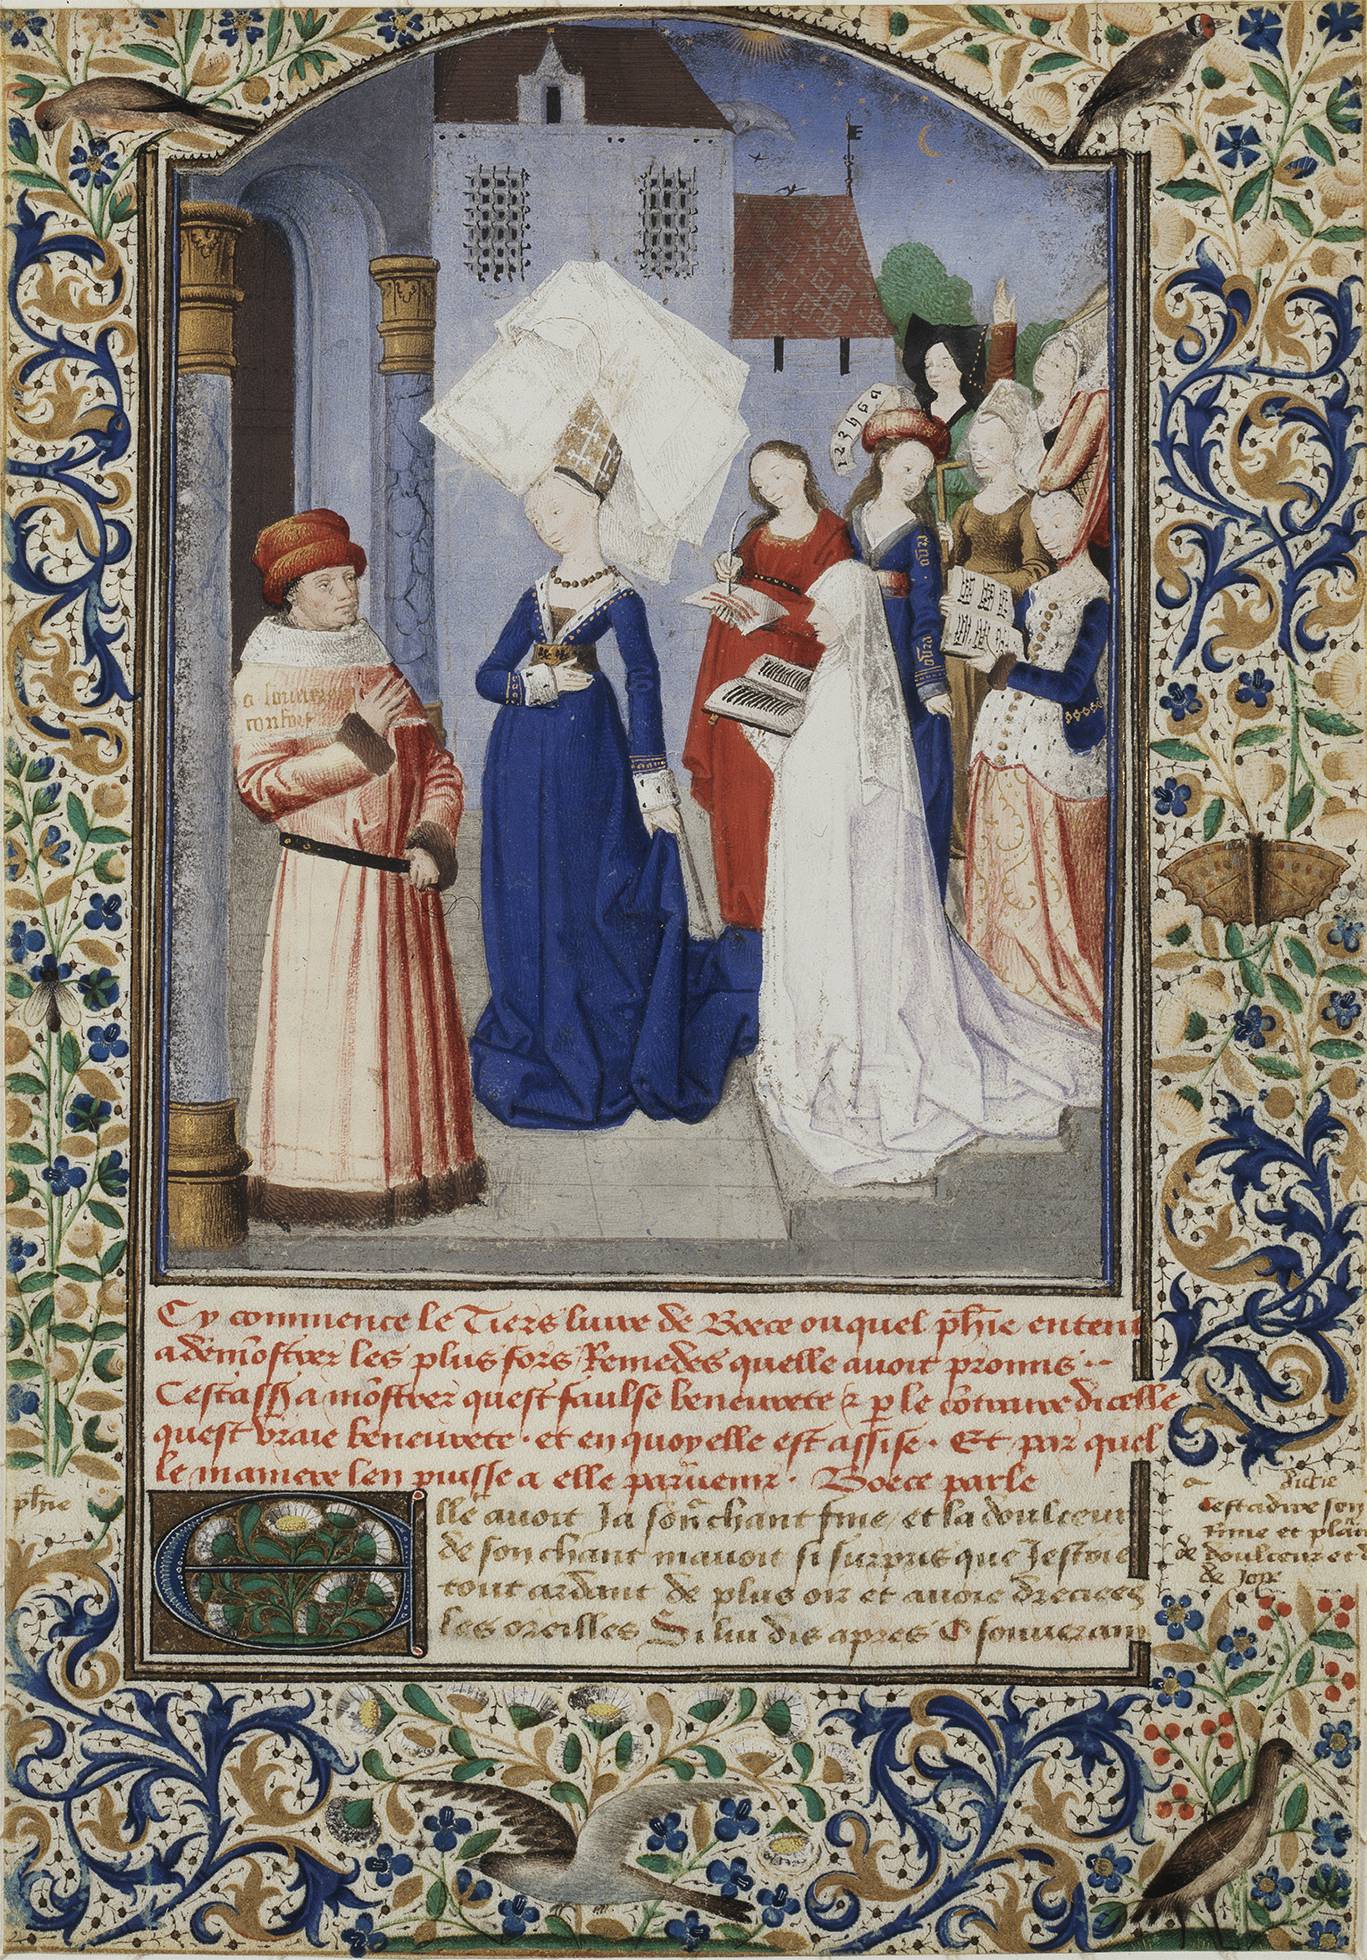 1 2 3 4 6 6 9
a souverain
confort
Cy commence le Tiers livre de Boece ouquel phīe entent
a demōstrer les plus fors Remedes quelle avoit promis··
Cestass̄ a mōstrer quest faulse beneurete & p le cōtraire dicelle
quest vraie beneurete · et en quoy elle est assise · Et par quel
le maniere len puisse a elle parvenir · Boece parle
Elle avoit Ja son chant fine et la doulceur
de son chant mavoit si surpris que Jestoie
tout ardant de plus oir et avoie drecies
les oreilles Si lui dis apres O souverain
phīe
Cestadire son
rime et plain
de doulceur et d
de Joye